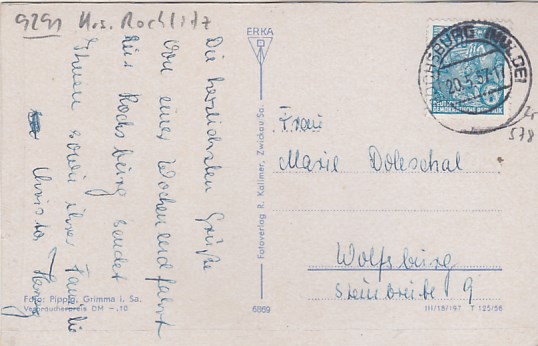 9291 Krs. Rochlitz
Die herzlichsten Grüße
von einer Wochenendfahrt
aus Rochsburg sendet
Ihnen sowie ihrer Familie
Christa
ERKA
Fotoverlag R. Kallmer, Zwickau/Sa.
6869
ROCHSBURG (MULDE)
20.5.57-17
DEUTSCHE
DEMOKRATISCHE REPUBLIK
578
Frau
Marie Doleschal
Wolfsburg
Steinbreite 9
Foto: Pippig, Grimma i. Sa.
Verbraucherpreis DM -,10
III/18/197 T 125/56